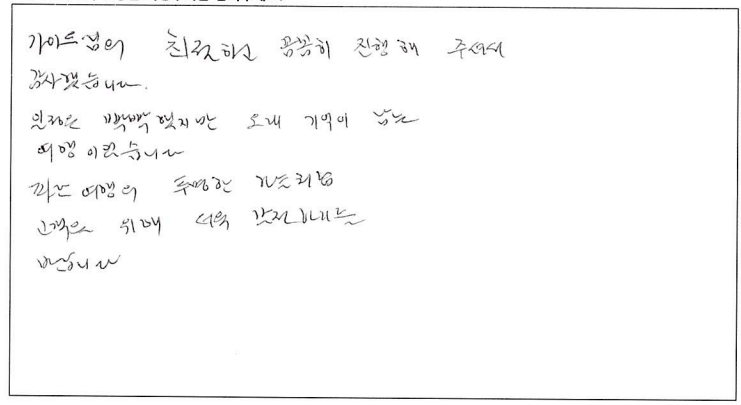 가이드님의 친절하고 꼼꼼히 진행해 주셔서
감사했습니다.
일정은 빡빡했지만 오래 기억이 남는
여행이었습니다
여행의 투명한
고객을 위해 더욱
바랍니다